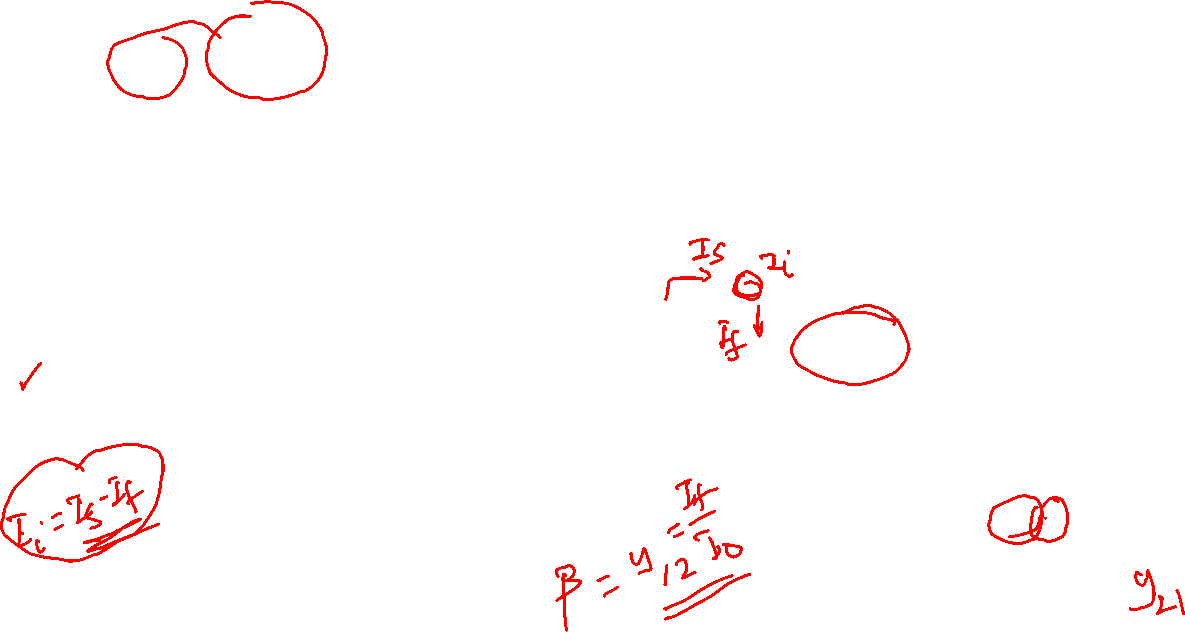 Is
Ii
If
Ii = Is - If
β = y12 = If/Io
y21